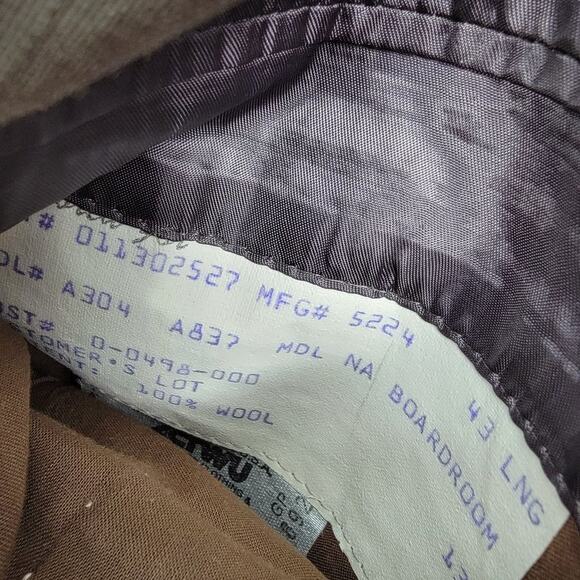 # 011302527 MFG# 5224 43 LNG
DL# A304 A837 MDL NA BOARDROOM
ST# 0-0498-000 13
TOMER'S LOT
ENT: 100% WOOL
CLOTHING &